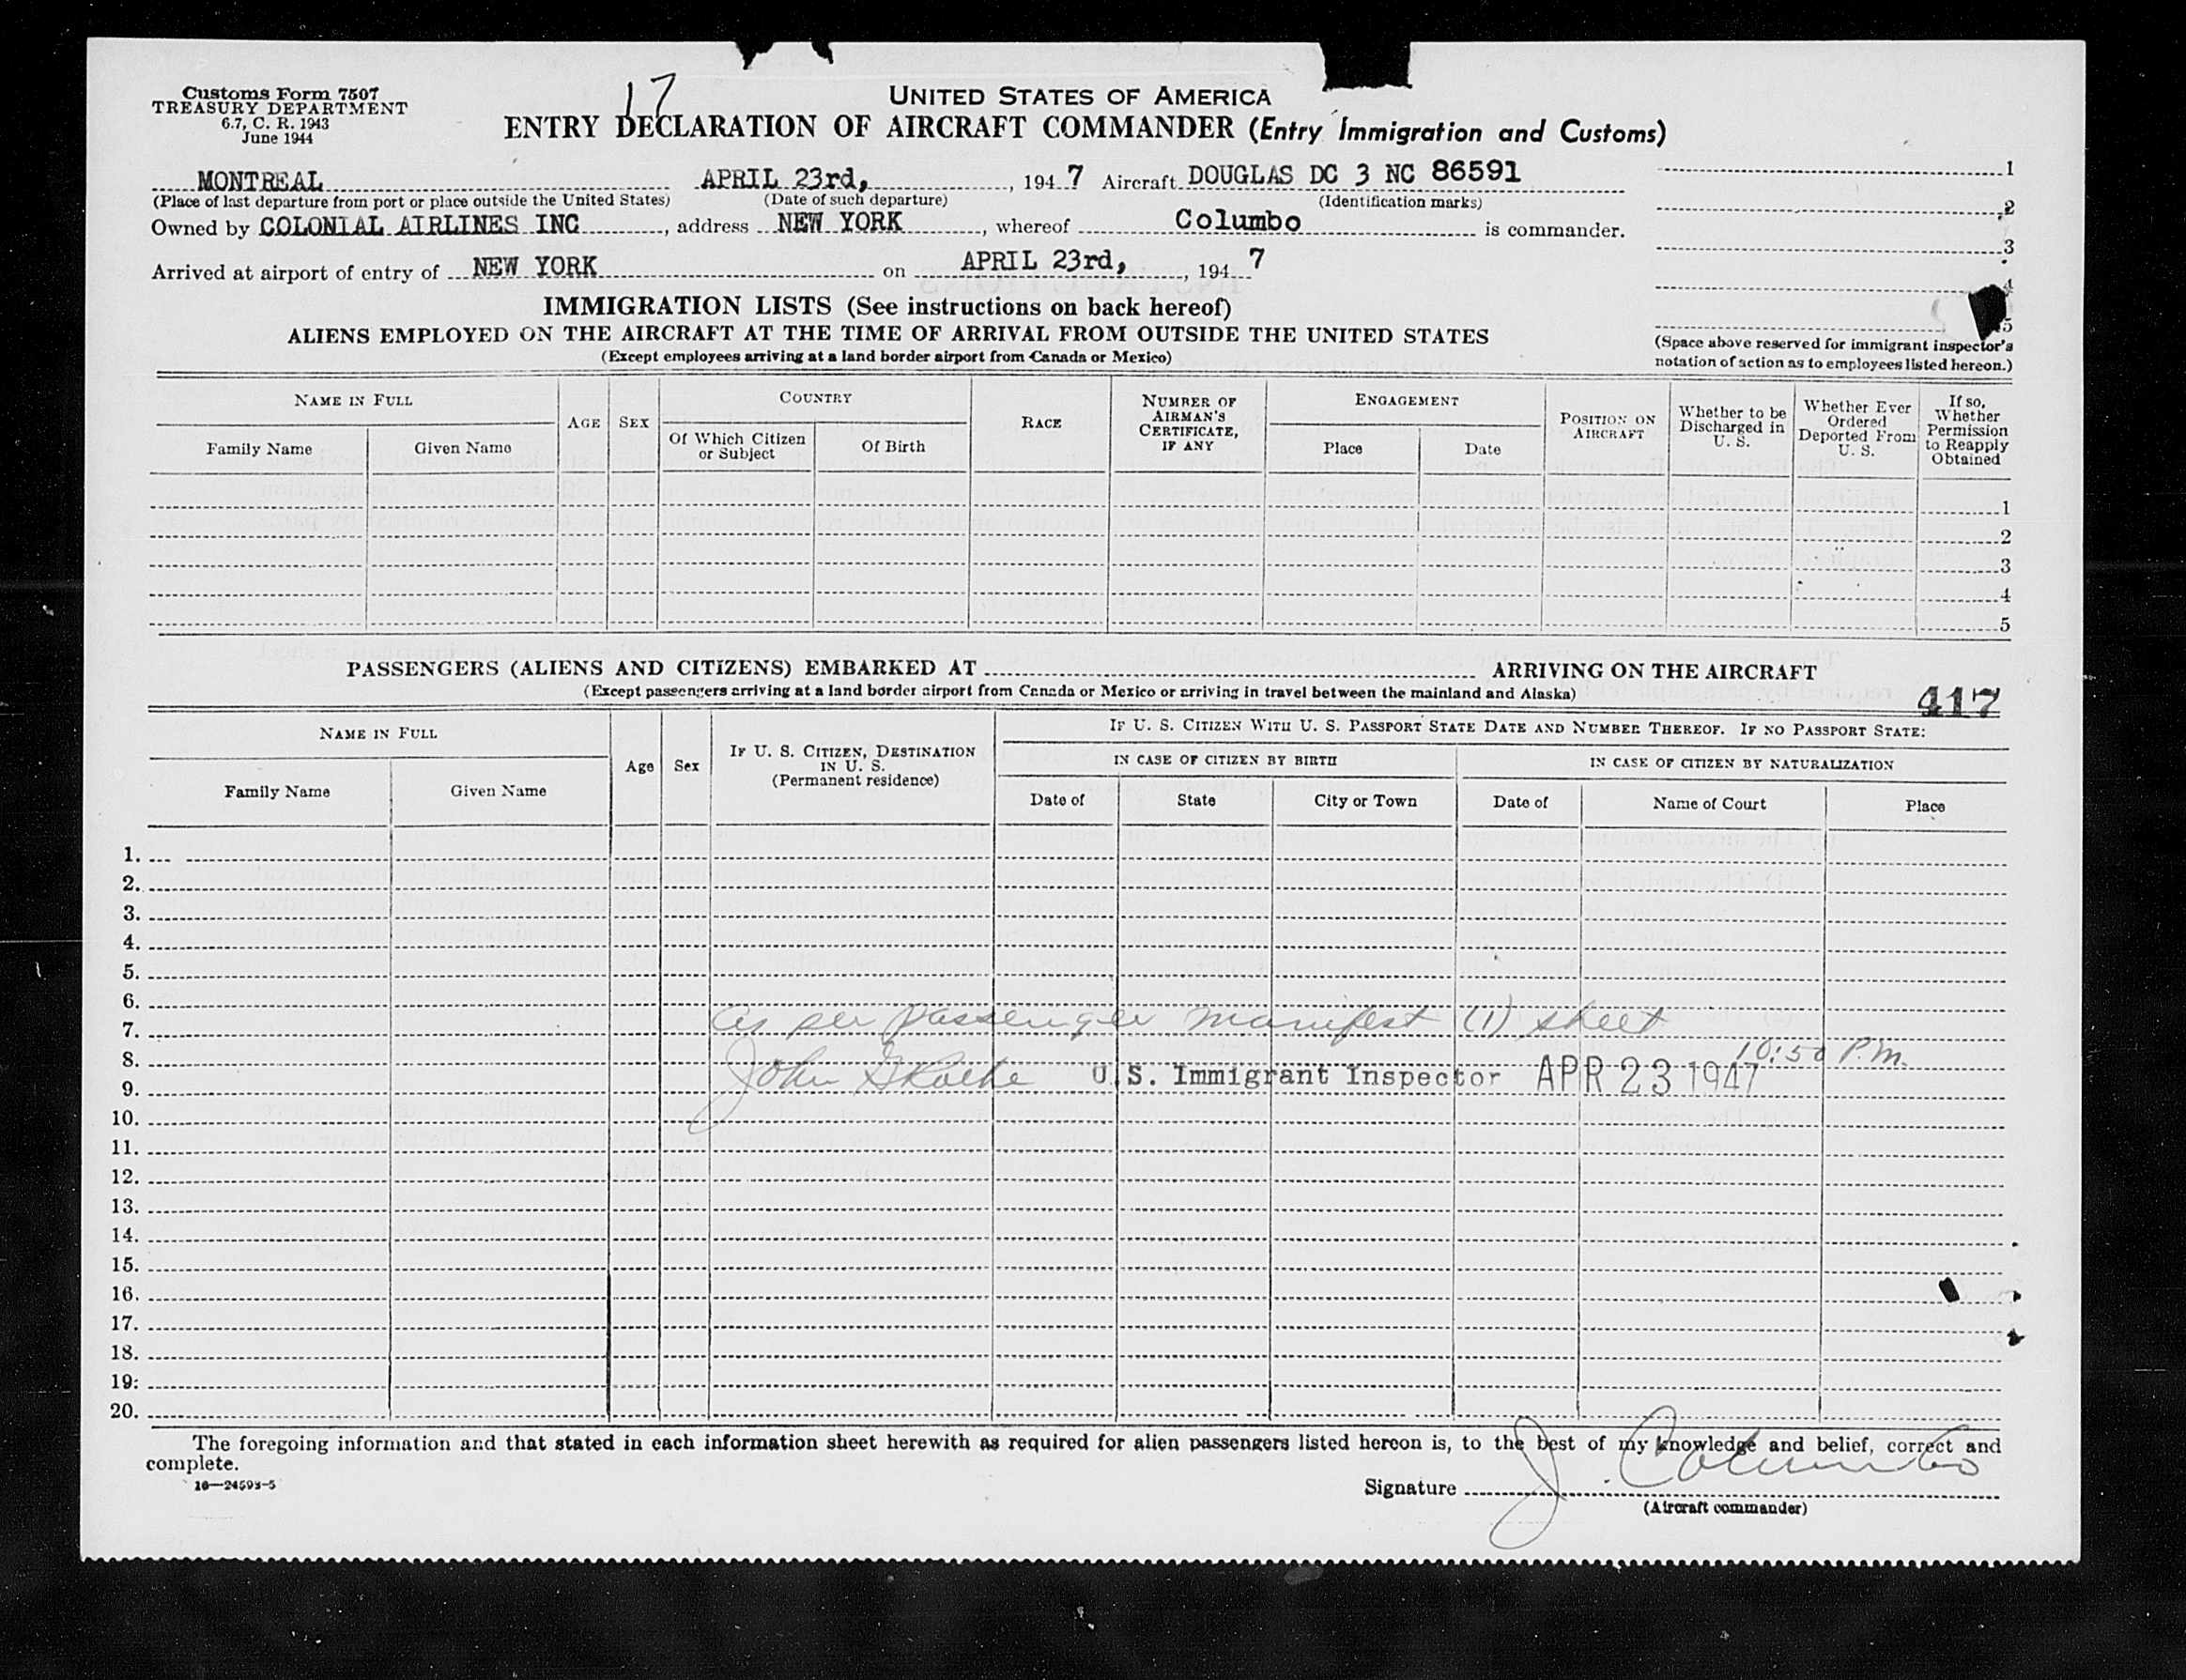 Customs Form 7507
TREASURY DEPARTMENT
6.7, C. R. 1943
June 1944
17
UNITED STATES OF AMERICA
ENTRY DECLARATION OF AIRCRAFT COMMANDER (Entry Immigration and Customs)
MONTREAL APRIL 23rd, , 194 7 Aircraft DOUGLAS DC 3 NC 86591
(Place of last departure from port or place outside the United States) (Date of such departure) (Identification marks)
Owned by COLONIAL AIRLINES INC , address NEW YORK , whereof Columbo is commander.
Arrived at airport of entry of NEW YORK on APRIL 23rd, , 194 7
1
2
3
4
5
(Space above reserved for immigrant inspector's
notation of action as to employees listed hereon.)
IMMIGRATION LISTS (See instructions on back hereof)
ALIENS EMPLOYED ON THE AIRCRAFT AT THE TIME OF ARRIVAL FROM OUTSIDE THE UNITED STATES
(Except employees arriving at a land border airport from Canada or Mexico)
NAME IN FULL
Family Name Given Name
AGE SEX
COUNTRY
Of Which Citizen
or Subject
Of Birth
RACE
NUMBER OF
AIRMAN'S
CERTIFICATE,
IF ANY
ENGAGEMENT
Place Date
POSITION ON
AIRCRAFT
Whether to be
Discharged in
U. S.
Whether Ever
Ordered
Deported From
U. S.
If so,
Whether
Permission
to Reapply
Obtained
1
2
3
4
5
PASSENGERS (ALIENS AND CITIZENS) EMBARKED AT ARRIVING ON THE AIRCRAFT
(Except passengers arriving at a land border airport from Canada or Mexico or arriving in travel between the mainland and Alaska)
417
NAME IN FULL
Family Name Given Name
Age Sex
IF U. S. CITIZEN, DESTINATION
IN U. S.
(Permanent residence)
IF U. S. CITIZEN WITH U. S. PASSPORT STATE DATE AND NUMBER THEREOF. IF NO PASSPORT STATE:
IN CASE OF CITIZEN BY BIRTH IN CASE OF CITIZEN BY NATURALIZATION
Date of State City or Town Date of Name of Court Place
1.
2.
3.
4.
5.
6.
7. as per passenger manifest (1) sheet
8. 10:50 P.M.
9. John U.S. Immigrant Inspector APR 23 1947
10.
11.
12.
13.
14.
15.
16.
17.
18.
19.
20.
The foregoing information and that stated in each information sheet herewith as required for alien passengers listed hereon is, to the best of my knowledge and belief, correct and
complete.
16—24593-5
Signature J. Columbo
(Aircraft commander)